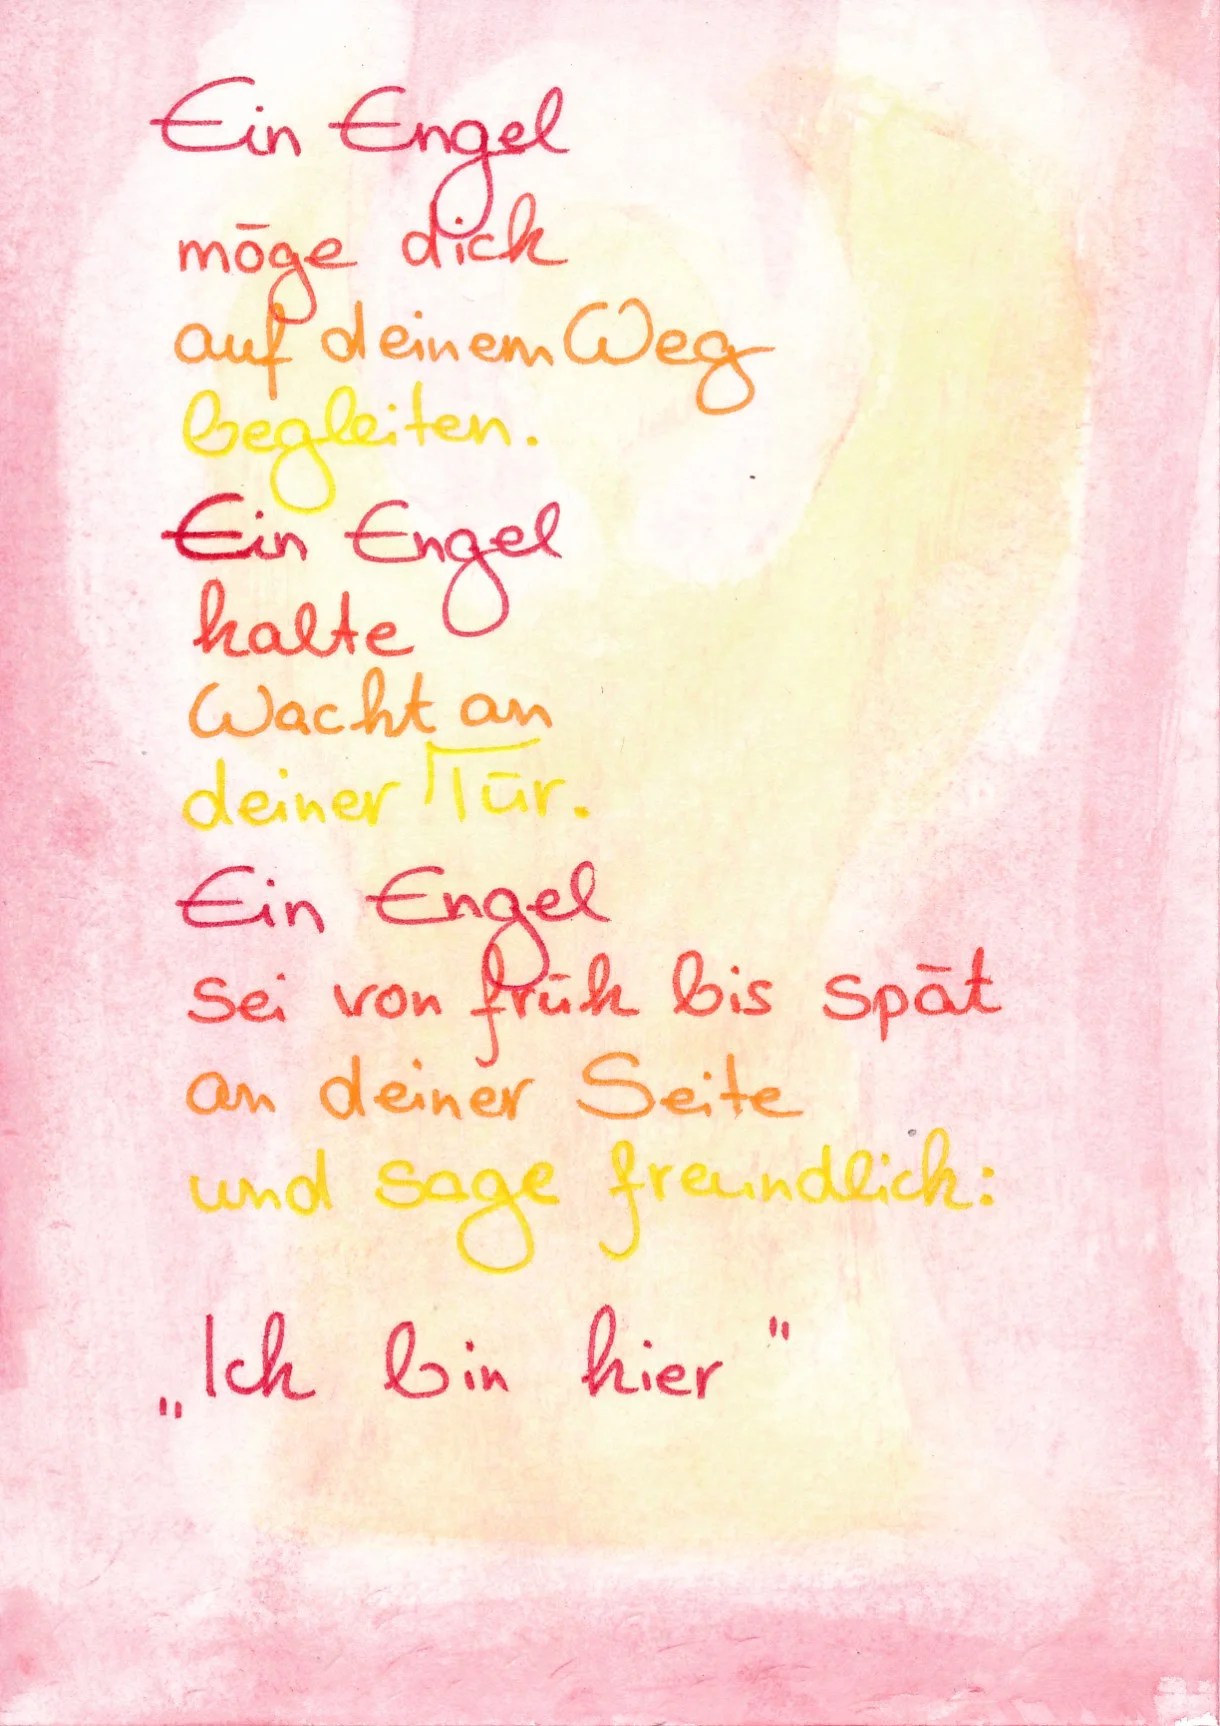 Ein Engel
möge dich
auf deinem Weg
begleiten.
Ein Engel
halte
Wacht an
deiner Tür.
Ein Engel
sei von früh bis spät
an deiner Seite
und sage freundlich:
„Ich bin hier"